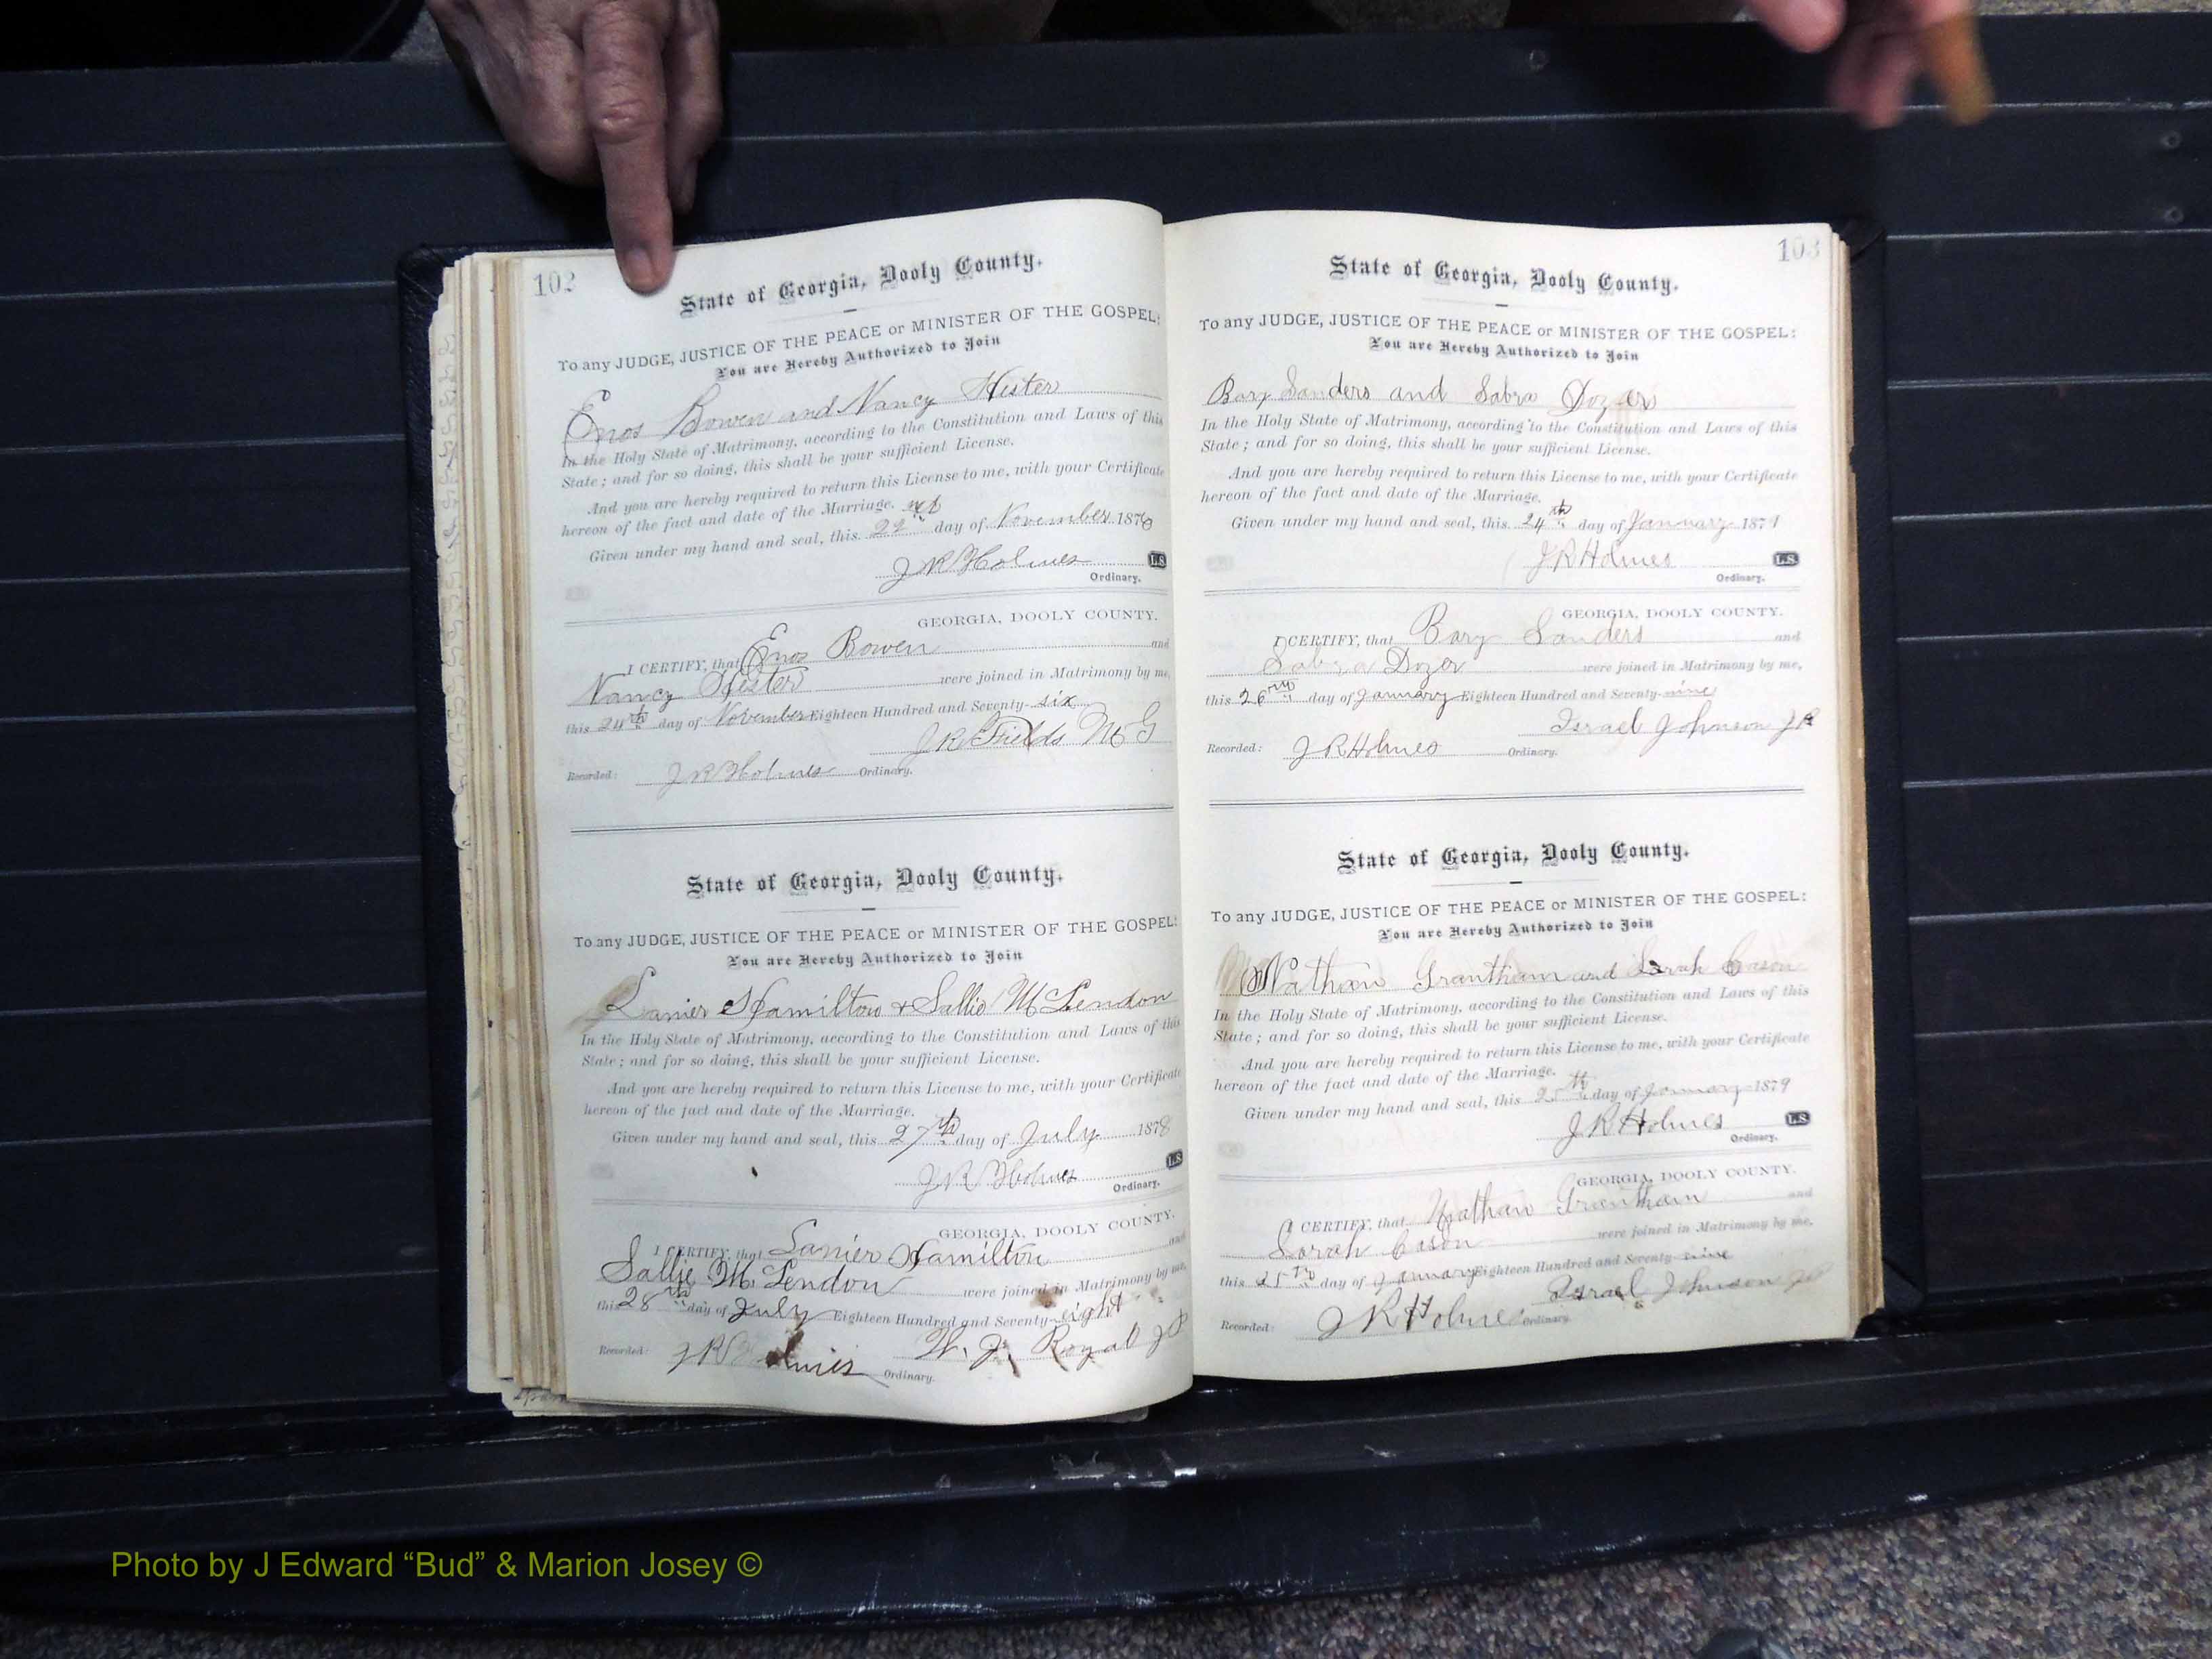 102
State of Georgia, Dooly County.
To any JUDGE, JUSTICE OF THE PEACE or MINISTER OF THE GOSPEL:
You are Hereby Authorized to Join
Enos Bowen and Nancy Hester
In the Holy State of Matrimony, according to the Constitution and Laws of this
State; and for so doing, this shall be your sufficient License.
And you are hereby required to return this License to me, with your Certificate
hereon of the fact and date of the Marriage.
Given under my hand and seal, this 22nd day of November 1876
J R Holmes L.S.
Ordinary.
GEORGIA, DOOLY COUNTY.
I CERTIFY, that Enos Bowen and
Nancy Hester were joined in Matrimony by me,
this 24th day of November Eighteen Hundred and Seventy-six
J R Fields M G
Recorded: J R Holmes Ordinary.
State of Georgia, Dooly County.
To any JUDGE, JUSTICE OF THE PEACE or MINISTER OF THE GOSPEL:
You are Hereby Authorized to Join
Lanier Hamilton & Sallie McLendon
In the Holy State of Matrimony, according to the Constitution and Laws of this
State; and for so doing, this shall be your sufficient License.
And you are hereby required to return this License to me, with your Certificate
hereon of the fact and date of the Marriage.
Given under my hand and seal, this 27th day of July 1878
J R Holmes L.S.
Ordinary.
GEORGIA, DOOLY COUNTY.
I CERTIFY, that Lanier Hamilton and
Sallie McLendon were joined in Matrimony by me,
this 28th day of July Eighteen Hundred and Seventy-eight
W. J. Royal J P
Recorded: J R Holmes Ordinary.
103
State of Georgia, Dooly County.
To any JUDGE, JUSTICE OF THE PEACE or MINISTER OF THE GOSPEL:
You are Hereby Authorized to Join
Bary Sanders and Sabra
In the Holy State of Matrimony, according to the Constitution and Laws of this
State; and for so doing, this shall be your sufficient License.
And you are hereby required to return this License to me, with your Certificate
hereon of the fact and date of the Marriage.
Given under my hand and seal, this 24th day of January 1879
J R Holmes L.S.
Ordinary.
GEORGIA, DOOLY COUNTY.
I CERTIFY, that Bary Sanders and
Sabra Dozer were joined in Matrimony by me,
this 26 day of January Eighteen Hundred and Seventy-nine
Israel Johnson J P
Recorded: J R Holmes Ordinary.
State of Georgia, Dooly County.
To any JUDGE, JUSTICE OF THE PEACE or MINISTER OF THE GOSPEL:
You are Hereby Authorized to Join
Nathan Grantham and Sarah Cason
In the Holy State of Matrimony, according to the Constitution and Laws of this
State; and for so doing, this shall be your sufficient License.
And you are hereby required to return this License to me, with your Certificate
hereon of the fact and date of the Marriage.
Given under my hand and seal, this 25th day of January 1879
J R Holmes L.S.
Ordinary.
GEORGIA, DOOLY COUNTY.
I CERTIFY, that Nathan Grantham and
Sarah Cason were joined in Matrimony by me,
this 25th day of January Eighteen Hundred and Seventy-nine
Israel Johnson J P
Recorded: J R Holmes Ordinary.
Photo by J Edward “Bud” & Marion Josey ©